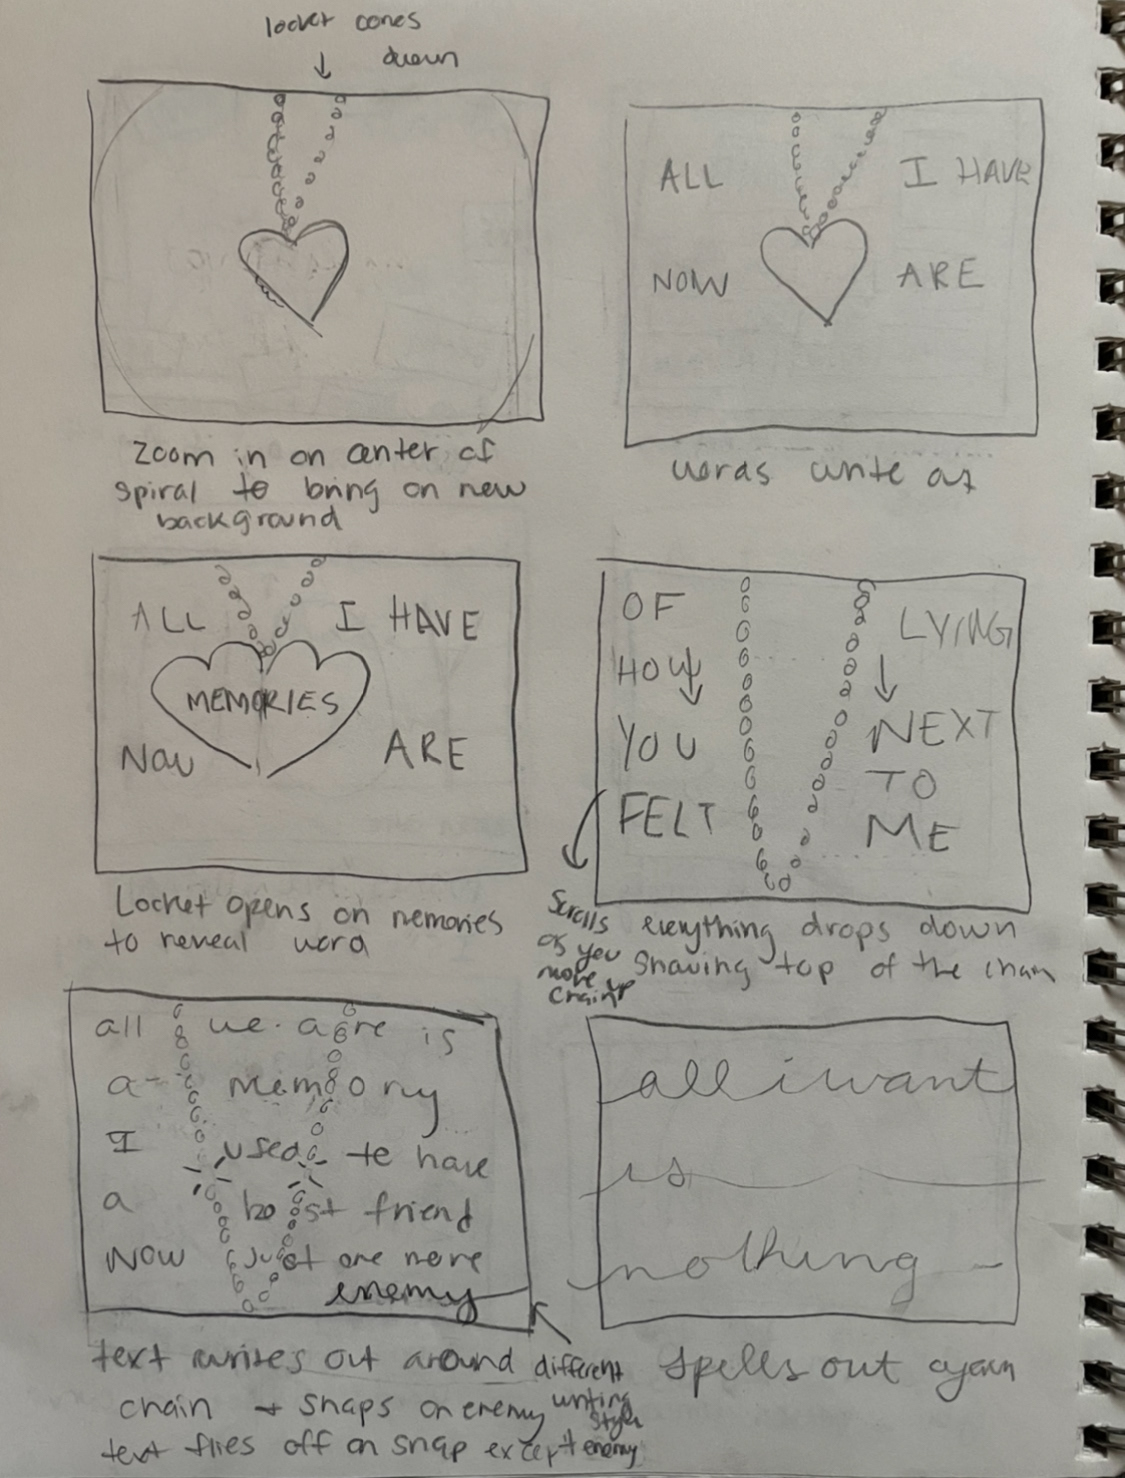 locket comes
down
zoom in on center of
spiral to bring on new
background
ALL I HAVE
NOW ARE
words write on
ALL I HAVE
MEMORIES
NOW ARE
Locket opens on memories
to reveal word
OF LYING
HOW
YOU NEXT
TO
FELT ME
Scrolls
as you
move up
chain
everything drops down
showing top of the chain
all we are is
a memory
I used to have
a best friend
NOW just one more
enemy
text writes out around
chain + snaps on enemy
text flies off on snap except enemy
different
writing
style
all i want
is
nothing
Spells out again